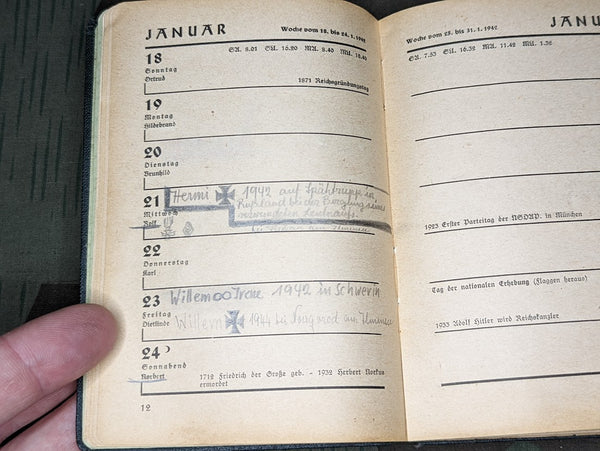 JANUAR
Woche vom 18. bis 24. 1. 1942
SA. 8.01 SU. 16.20 MA. 8.40 MU. 18.40
18
Sonntag
Ortrud
1871 Reichsgründungstag
19
Montag
Hildebrand
20
Dienstag
Brunhild
21
Mittwoch
Hermi 1942 auf Spähtrupp in
Rußland bei der Bergung eines
verwundeten
22
Donnerstag
Karl
23
Freitag
Dietlinde
Willem Irene 1942 in Schwerin
Willem 1944 bei
24
Sonnabend
Norbert
1712 Friedrich der Große geb. - 1932 Herbert Norkus
ermordet
12
JANU
Woche vom 25. bis 31. 1. 1942
SA. 7.53 SU. 16.32 MA. 11.42 MU. 1.36
1923 Erster Parteitag der NSDAP. in München
Tag der nationalen Erhebung (Flaggen heraus)
1933 Adolf Hitler wird Reichskanzler